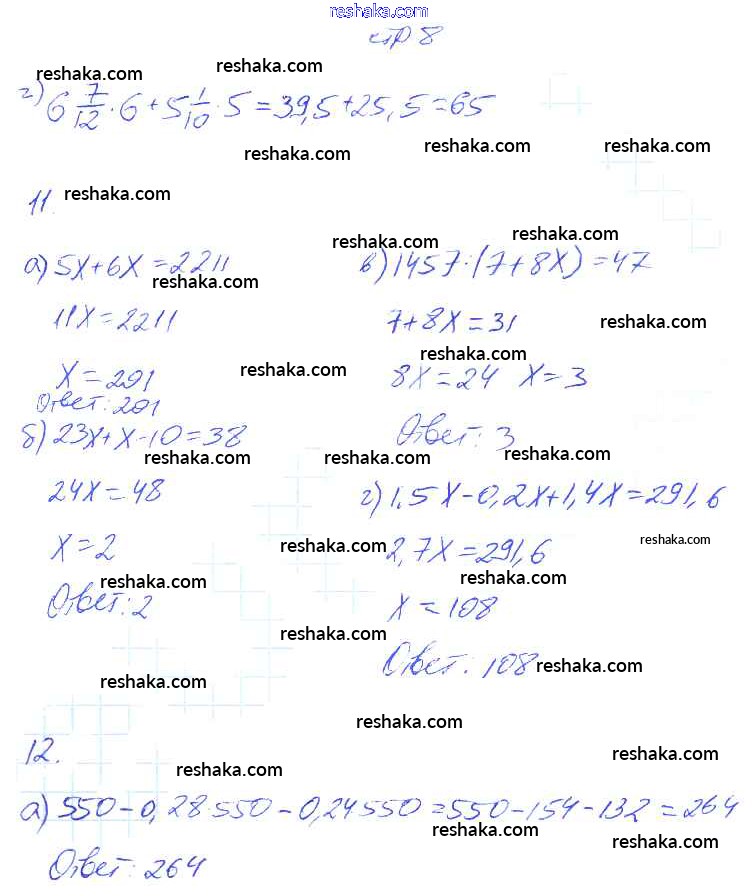 reshaka.com
стр 8
reshaka.com reshaka.com
г) 6 7/12 · 6 + 5 1/10 · 5 = 39,5 + 25,5 = 65
reshaka.com reshaka.com reshaka.com
11. reshaka.com
reshaka.com reshaka.com
а) 5x + 6x = 2211
reshaka.com
11x = 2211
x = 291
reshaka.com
Ответ: 201
б) 23x + x - 10 = 38
reshaka.com
24x = 48
x = 2
reshaka.com
Ответ: 2
reshaka.com
в) 1457 : (7 + 8x) = 47
7 + 8x = 31 reshaka.com
reshaka.com
8x = 24 x = 3
Ответ: 3
reshaka.com reshaka.com
г) 1,5x - 0,2x + 1,4x = 291,6
reshaka.com reshaka.com
2,7x = 291,6
reshaka.com
x = 108
reshaka.com
Ответ: 108 reshaka.com
reshaka.com
12.
reshaka.com reshaka.com
а) 550 - 0,28 550 - 0,24 550 = 550 - 154 - 132 = 264
reshaka.com reshaka.com
Ответ: 264